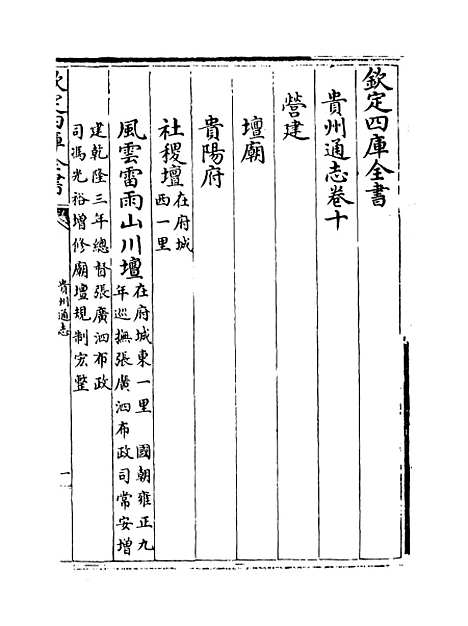 欽定四庫全書
貴州通志卷十
營建
壇廟
貴陽府
社稷壇在府城
西一里
風雲雷雨山川壇在府城東一里 國朝雍正九
年巡撫張廣泗布政司常安增
建乾隆三年總督張廣泗布政
司馮光裕增修廟壇規制宏整
欽定四庫全書
貴州通志
一